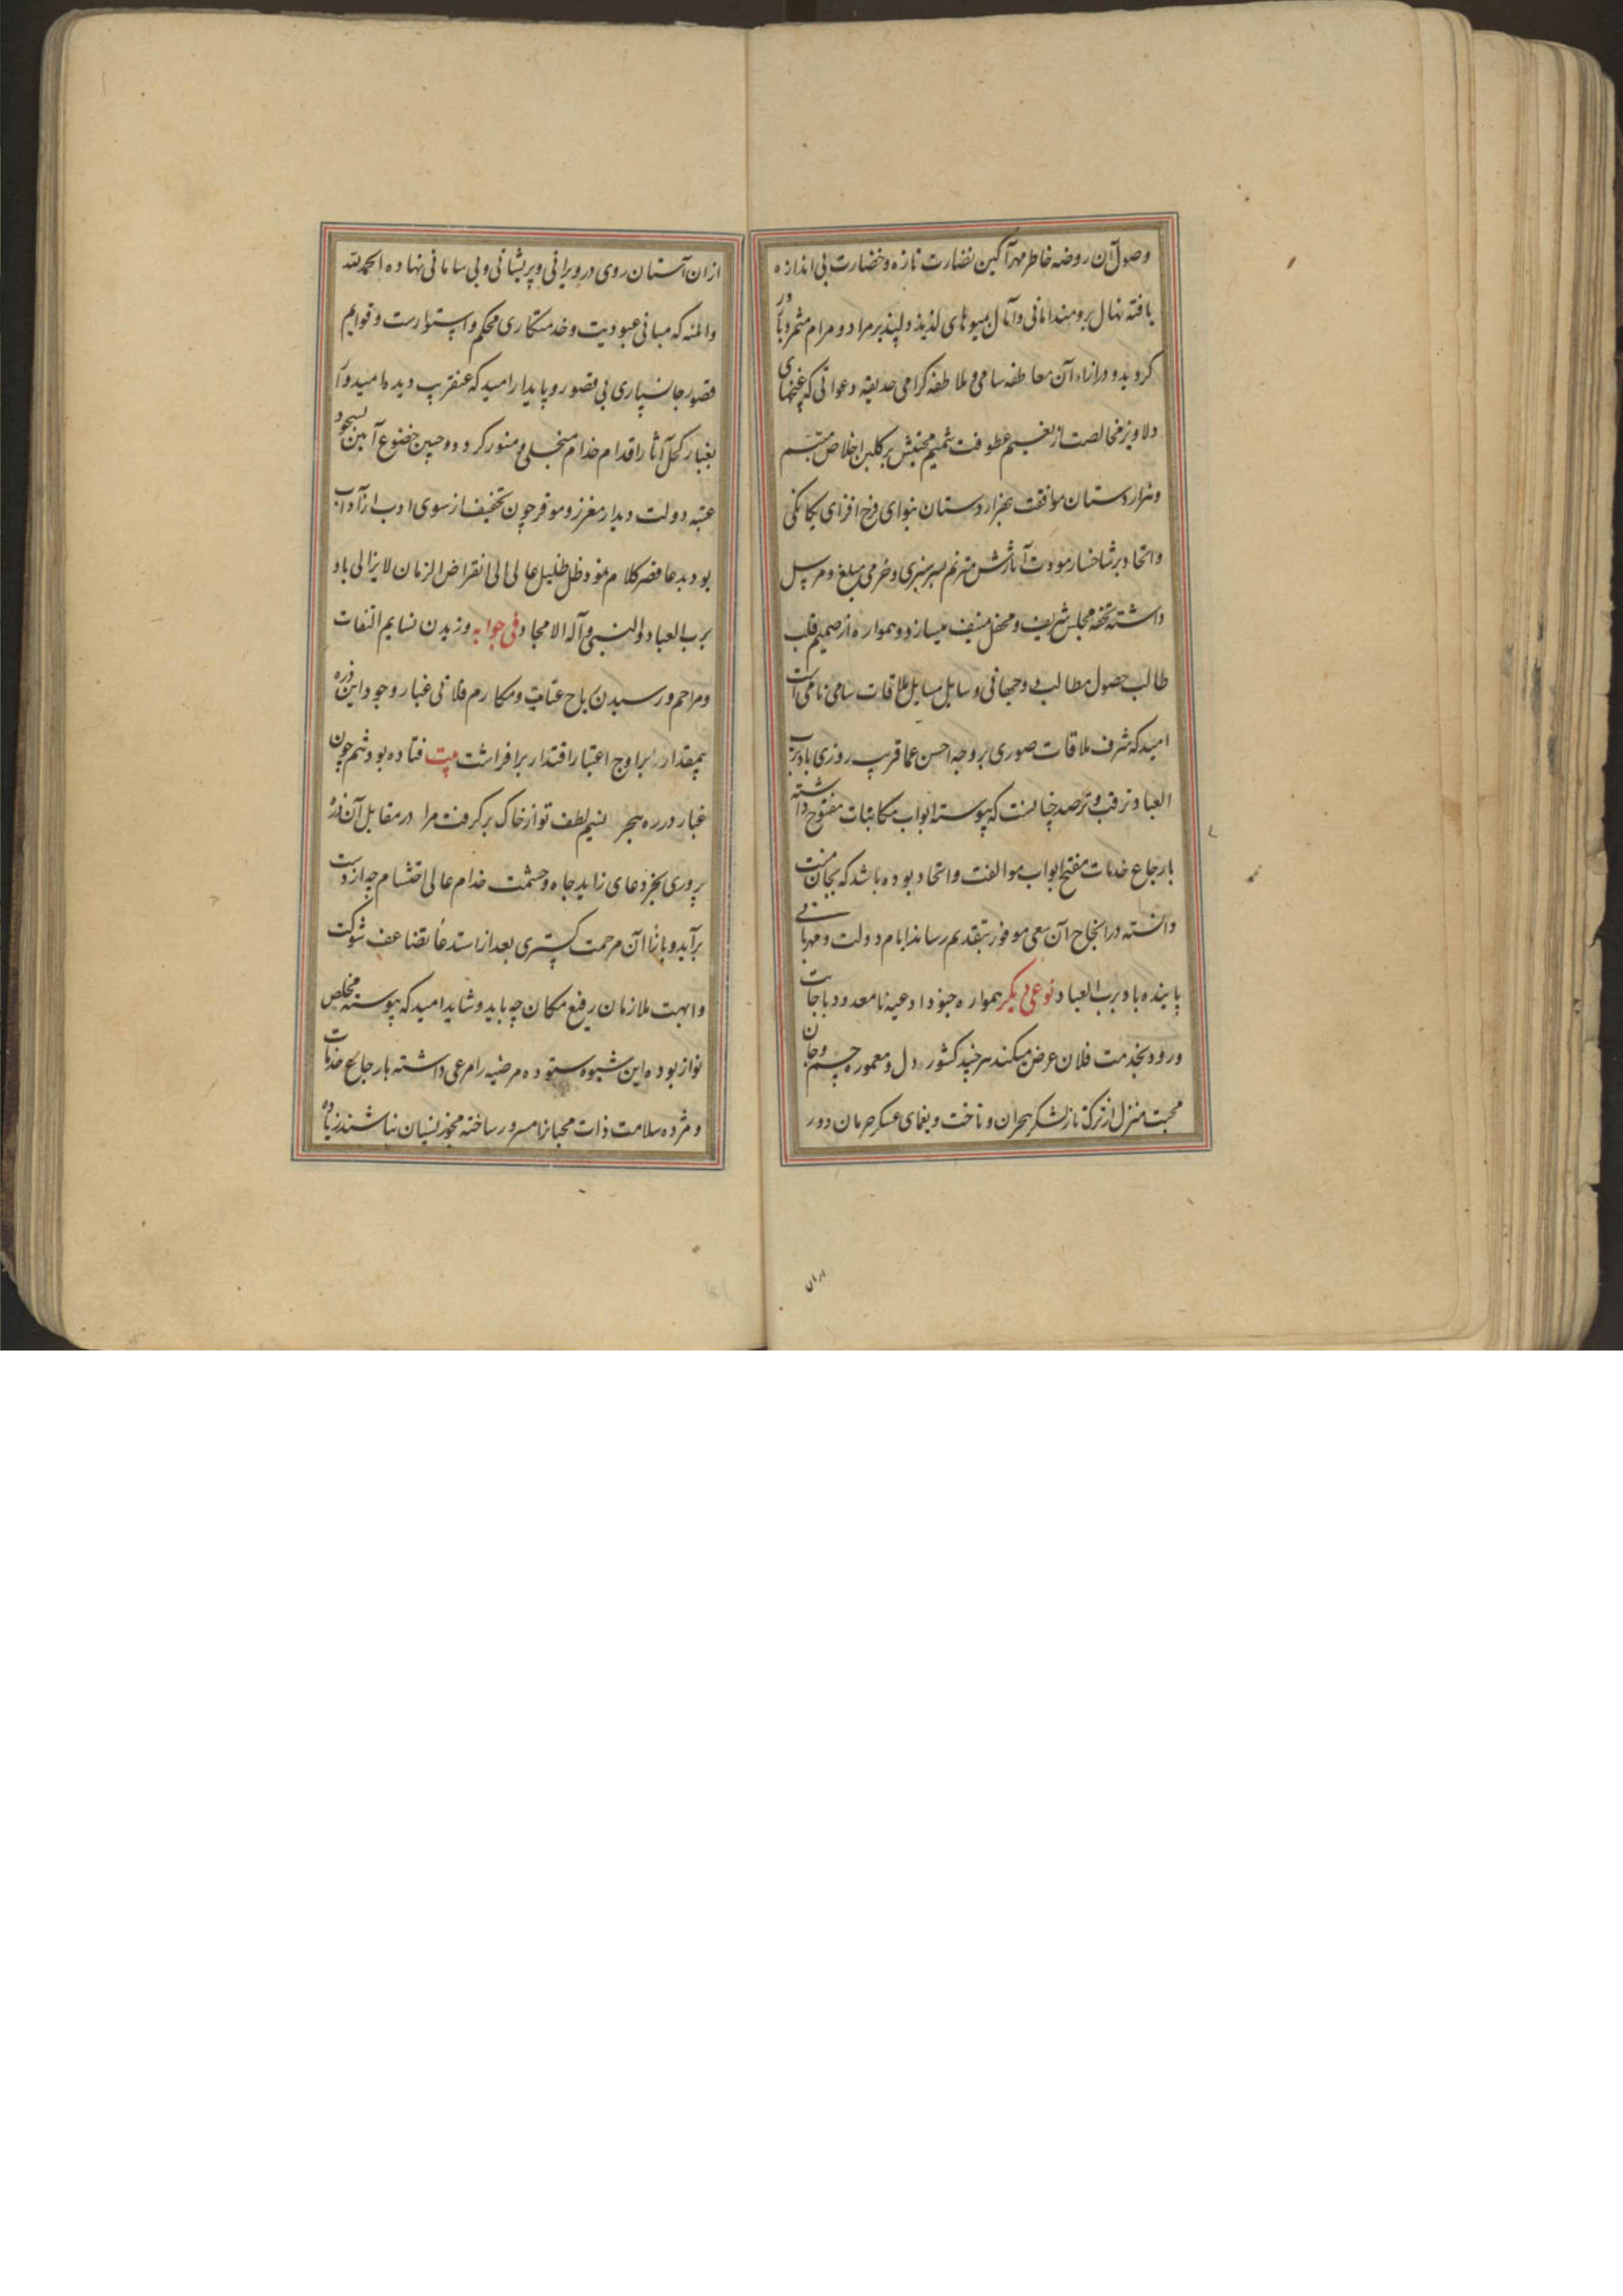 وصول آن روضه خاطر مهرآگین نضارت تازه و خضارت بی اندازه
یافته نهال برومند امانی و آمال بمیوهای لذیذ دلپذیر مراد و مرام مثمر و بارور
کردید و در ازاء آن معاطفه سامی و ملاطفه کرامی حدیقه دعوانی که غنچهای
دلاویز مخالصت از نسیم عطوفت شمیم محبتش بر کلبن اخلاص متبسم
و هزار دستان موافقت بهزار دستان بنوای فرح افزای یکانکی
و اتحاد بر شاخسار مودت آثارش مترنم بسرسبزی و خرمی مبلغ و مرسل
داشته تحفه مجلس شریف و محفل منیف میسازد و همواره از صمیم قلب
طالب حصول مطالب دوجهانی و سایل مسایل ملاقات سامی نامی است
امید که شرف ملاقات صوری بر وجه احسن عما قریب روزی باد برب
العباد ترقب و ترصد چنانست که پیوسته ابواب مکاتبات مفتوح داشته
بارجاع خدمات مفتح ابواب موالفت و اتحاد بوده باشد که بجان منت
دانسته در انجاح آن سعی موفور بتقدیم رساند ایام دولت و مهربانی
پاینده باد برب العباد نوعی دیکر همواره جنود ادعیه نامعدود باجابت
ورود بخدمت فلان عرض میکند هر چند کشور دل و معموره چشم و جان
محبت منزل از ترکتاز لشکر هجران و تاخت و یغمای عسکر حرمان دور
ازان
ازان آستان روی در ویرانی و پریشانی و بی سامانی نهاده الحمدلله
والمنه که مبانی عبودیت و خدمتکاری محکم و استوارست و قوایم
قصور جانسپاری بی قصور و پایدار امید که عنقریب دیده امیدوار
بغبار کحل آثار اقدام خدام منجلی و منور کردد و جبین خضوع آیین بسجود
عتبه دولت دیدار معزز و موقر چون تخفیف از سوی ادب از آداب
بود بدعا قصر کلام نمود ظل ظلیل عالی الی انقراض الزمان لایزالی باد
برب العباد والنبی و آله الامجاد فی جوابه وزیدن نسایم التفات
و مراحم و رسیدن ریاح عنایت و مکارم فلانی غبار وجود این ذره
بیمقدار را بر اوج اعتبار اقتدار برافراشت بیت فتاده بودم چون
غبار در ره هجر نسیم لطف تو از خاک برکرفت مرا در مقابل آن ذره
پروری بجز دعای زاید جاه و حشمت خدام عالی احتشام چه از دست
برآید و بازاء آن مرحمت کستری بعد از استدعا تضاعف شوکت
و ابهت ملازمان رفیع مکان چه باید و شاید امید که پیوسته مخلص
نواز بوده این شیوه ستوده مرضیه را مرعی داشته بارجاع خدمات
و مژده سلامت ذات محبانرا مسرور ساخته مجوز نسیان نباشند زیاده